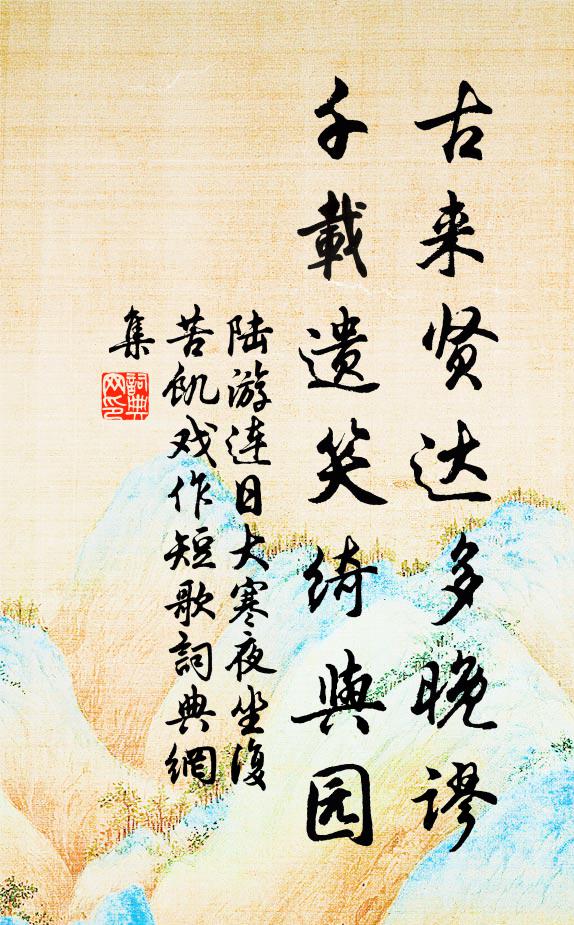 古来贤达多晚谬
千載遗笑绮與园
陆游连日大寒夜坐復
苦饥戏作短歌詞典網
集
詞典
网印